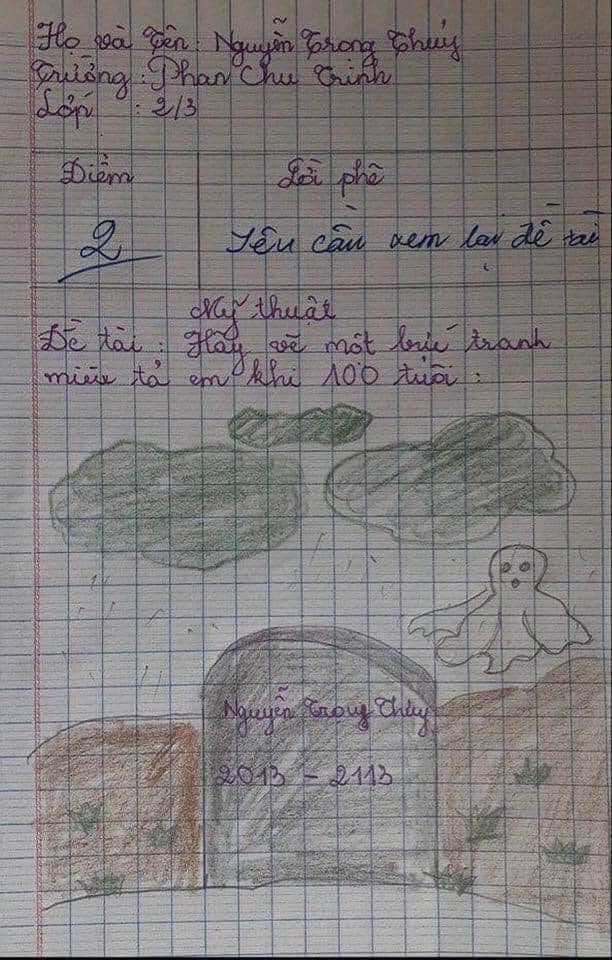 Họ và Tên : Nguyễn Trọng Thúy
Trường : Phan Chu Trinh
Lớp : 2/3
Điểm
Lời phê
2
Yêu cầu xem lại đề tài
Mỹ thuật
Đề tài : Hãy vẽ một bức tranh
miêu tả em khi 100 tuổi :
Nguyễn Trọng Thúy
2013 - 2113